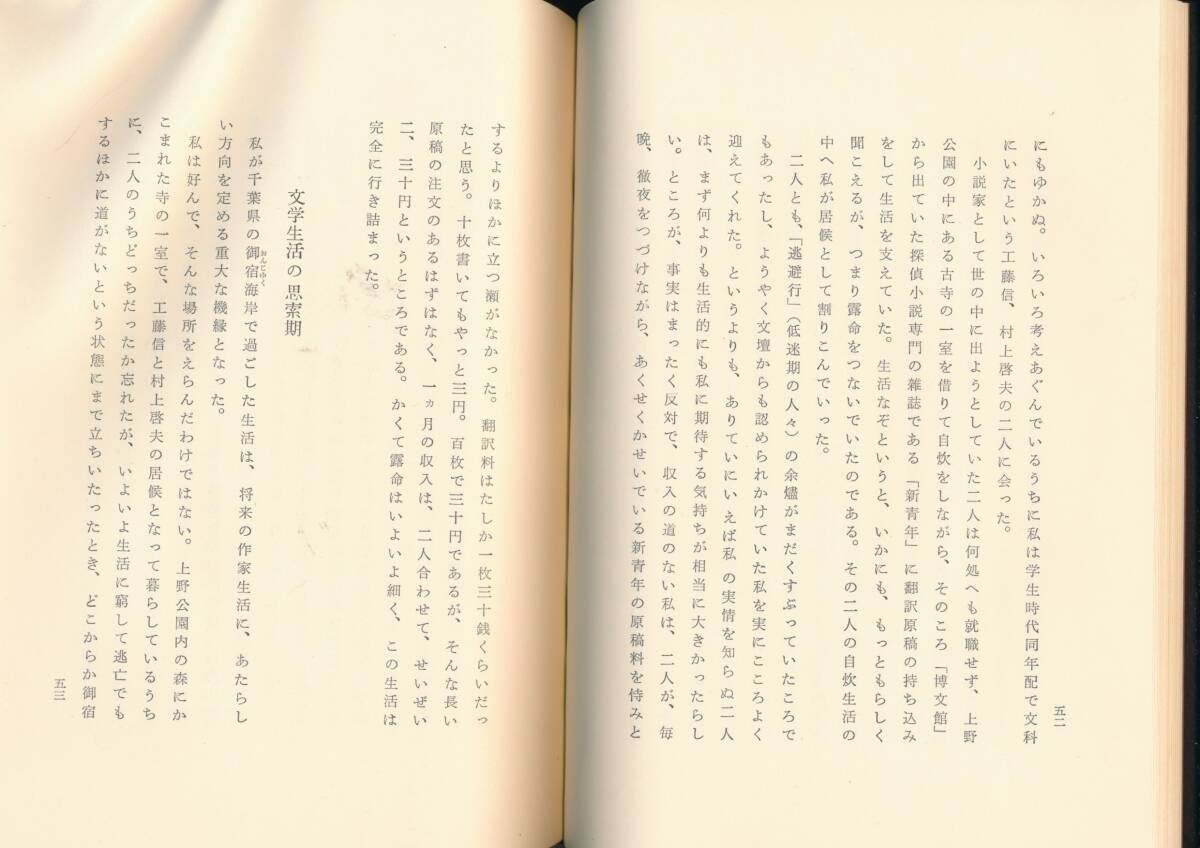 にもゆかぬ。いろいろ考えあぐんでいるうちに私は学生時代同年配で文科
にいたという工藤信、村上啓夫の二人に会った。
小説家として世の中に出ようとしていた二人は何処へも就職せず、上野
公園の中にある古寺の一室を借りて自炊をしながら、そのころ「博文館」
から出ていた探偵小説専門の雑誌である「新青年」に翻訳原稿の持ち込み
をして生活を支えていた。生活なぞというと、いかにも、もっともらしく
聞こえるが、つまり露命をつないでいたのである。その二人の自炊生活の
中へ私が居候として割りこんでいった。
二人とも、「逃避行」（低迷期の人々）の余燼がまだくすぶっていたころで
もあったし、ようやく文壇からも認められかけていた私を実にこころよく
迎えてくれた。というよりも、ありていにいえば私の実情を知らぬ二人
は、まず何よりも生活的にも私に期待する気持ちが相当に大きかったらし
い。ところが、事実はまったく反対で、収入の道のない私は、二人が、毎
晩、徹夜をつづけながら、あくせくかせいでいる新青年の原稿料を恃みと
五二
するよりほかに立つ瀬がなかった。翻訳料はたしか一枚三十銭くらいだっ
たと思う。十枚書いてもやっと三円。百枚で三十円であるが、そんな長い
原稿の注文のあるはずはなく、一ヵ月の収入は、二人合わせて、せいぜい
二、三十円というところである。かくて露命はいよいよ細く、この生活は
完全に行き詰まった。
文学生活の思索期
私が千葉県の御宿海岸で過ごした生活は、将来の作家生活に、あたらし
おんじゆく
い方向を定める重大な機縁となった。
私は好んで、そんな場所をえらんだわけではない。上野公園内の森にか
こまれた寺の一室で、工藤信と村上啓夫の居候となって暮らしているうち
に、二人のうちどっちだったか忘れたが、いよいよ生活に窮して逃亡でも
するほかに道がないという状態にまで立ちいたったとき、どこからか御宿
五三